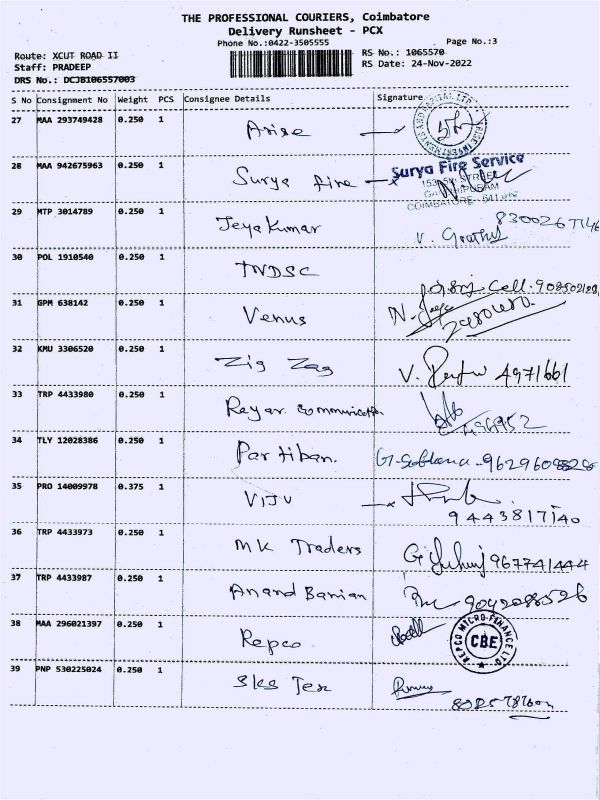 THE PROFESSIONAL COURIERS, Coimbatore
Delivery Runsheet - PCX
Phone No.:0422-3505555
Page No.:3
Route: XCUT ROAD II
RS No.: 1065570
Staff: PRADEEP
RS Date: 24-Nov-2022
DRS No.: DCJB106557003
S No Consignment No Weight PCS Consignee Details Signature
27 MAA 293749428 0.250 1 Arise
28 MAA 942675963 0.250 1 Surya fire Surya Fire Service
COIMBATORE
29 MTP 3014789 0.250 1 Jeya Kumar V.
30 POL 1910540 0.250 1 TNDSC Cell.
31 GPM 638142 0.250 1 Venus N.
32 KMU 3306520 0.250 1 Zig Zag V. 4971661
33 TRP 4433980 0.250 1 Rayar communication
34 TLY 12028386 0.250 1 Partiban.
35 PRO 14009978 0.375 1 VIJU
9443817140
36 TRP 4433973 0.250 1 MK Traders 967741444
37 TRP 4433987 0.250 1 Anand Banian
38 MAA 296021397 0.250 1 Repco REPCO MICRO-FINANCE LTD CBE
39 PNP 530225024 0.250 1 Sks Tex